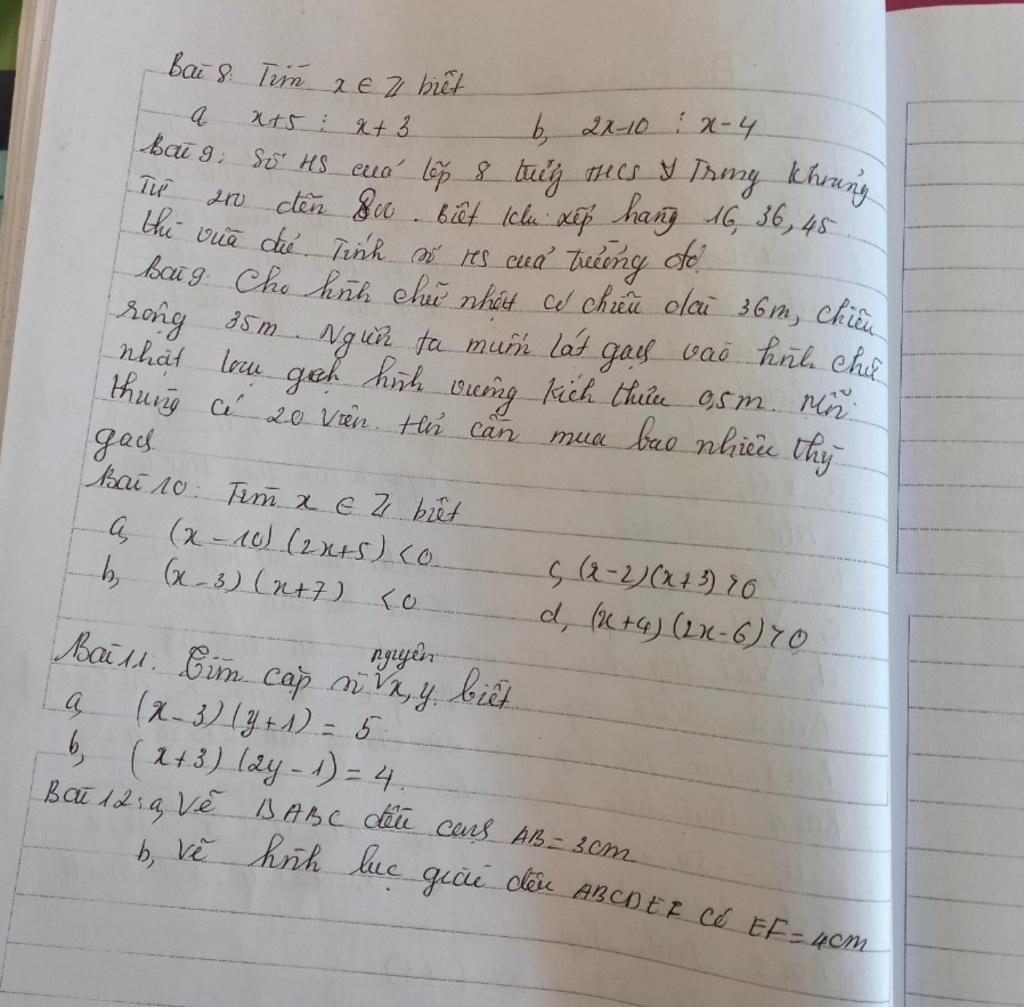 Bài 8: Tìm x ∈ Z biết
a, x+5 ⋮ x+3 b, 2x-10 ⋮ x-4
Bài 9: Số HS của lớp 8 trường THCS Y Trong khoảng
Từ 200 đến 800. Biết khi xếp hàng 16, 36, 45
thì vừa đủ. Tính số HS của trường đó.
Bài 9. Cho hình chữ nhật có chiều dài 36m, chiều
rộng 35m. Người ta muốn lát gạch vào hình chữ
nhật loại gạch hình vuông kích thước 0,5m. Mỗi
thùng có 20 viên. Hỏi cần mua bao nhiêu thùng
gạch.
Bài 10: Tìm x ∈ Z biết
a, (x-10)(2x+5) <0 c, (x-2)(x+3) >0
b, (x-3)(x+7) <0 d, (x+4)(2x-6) >0
Bài 11: Tìm cặp số nguyên x, y. biết
a, (x-3)(y+1) = 5.
b, (x+3)(2y-1) = 4.
Bài 12: a, Vẽ ΔABC đều cạnh AB = 3cm
b, Vẽ hình lục giác đều ABCDEF có EF = 4cm